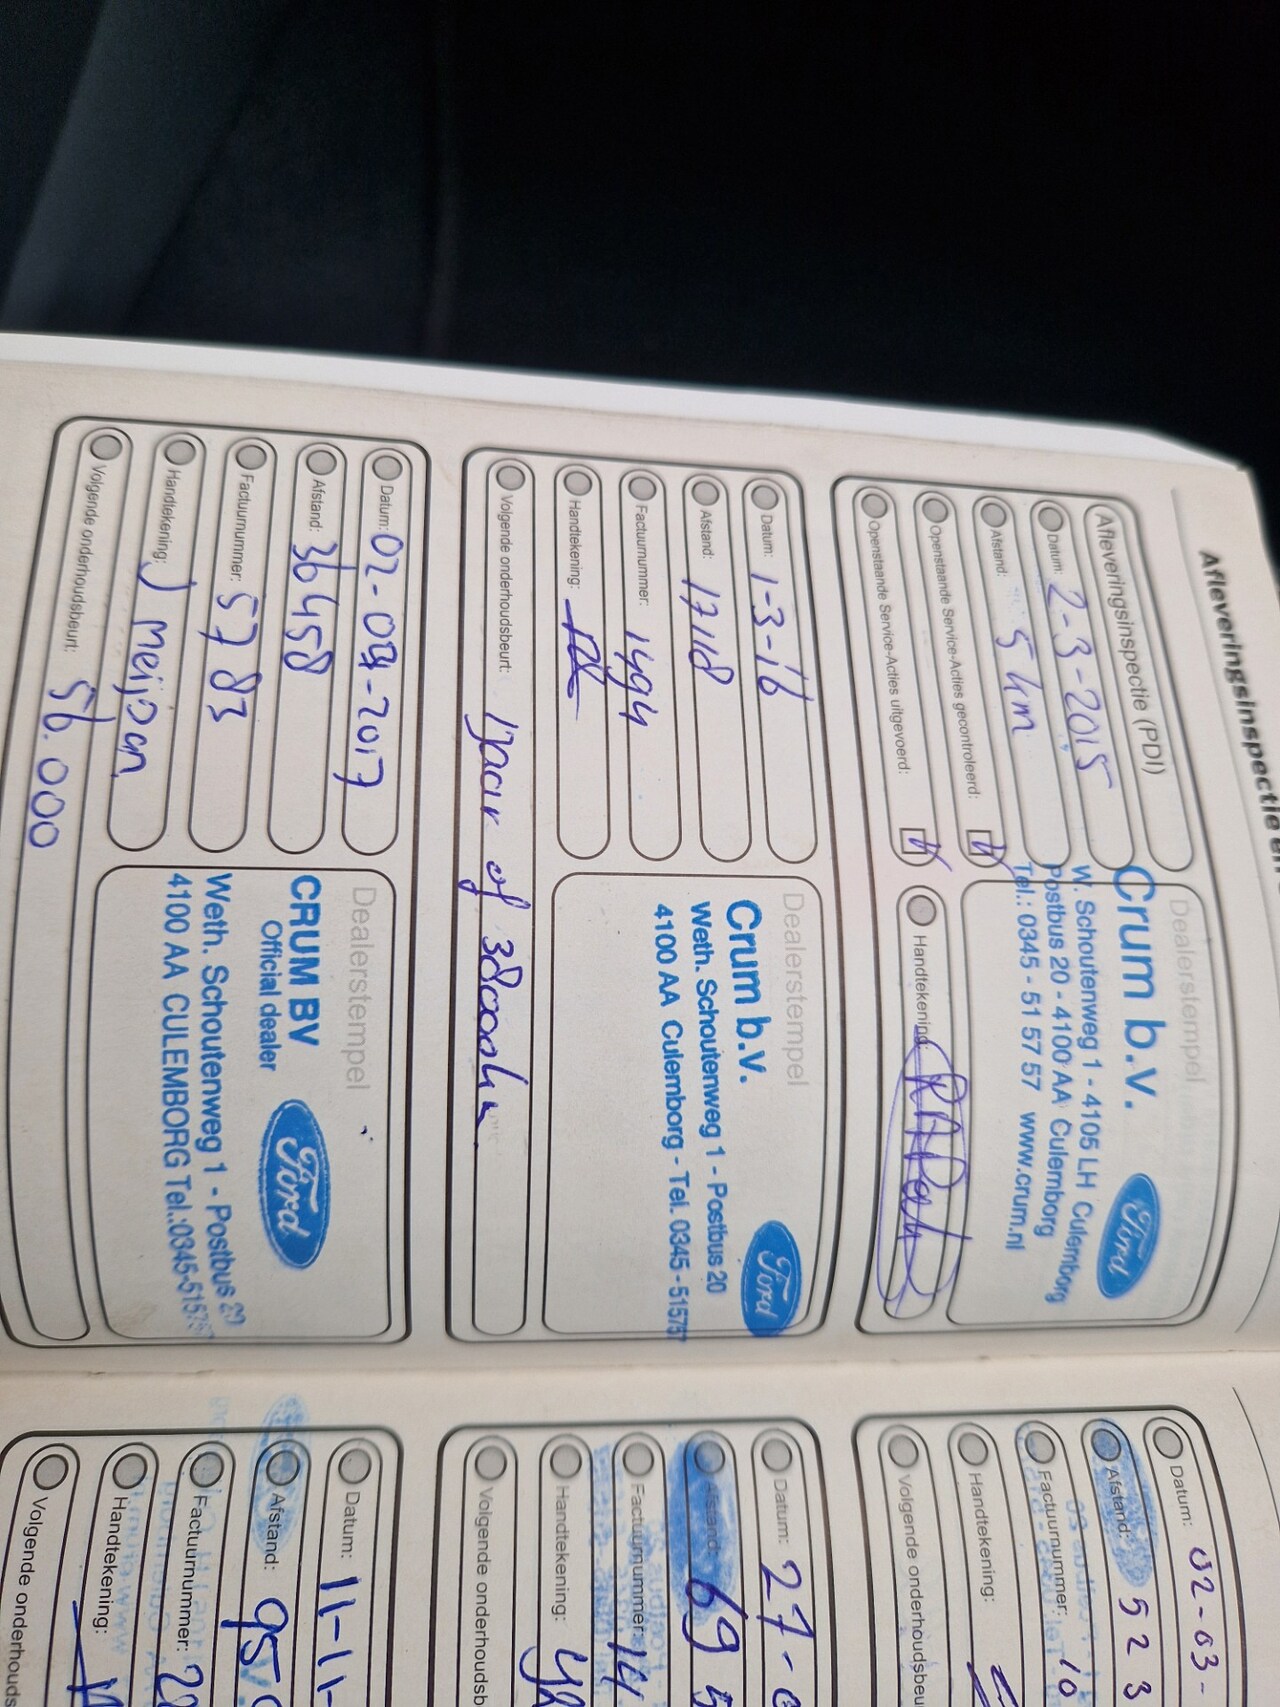 Afleveringsinspectie en
Afleveringsinspectie (PDI)
Datum: 2-3-2015
Afstand: 5 km
Openstaande Service-Acties gecontroleerd:
Openstaande Service-Acties uitgevoerd:
Dealerstempel
Crum b.v.
Ford
W. Schoutenweg 1 - 4105 LH Culemborg
Postbus 20 - 4100 AA Culemborg
Tel.: 0345 - 51 57 57 www.crum.nl
Handtekening:
Datum: 1-3-16
Afstand: 17118
Factuurnummer: 1494
Handtekening:
Dealerstempel
Crum b.v.
Ford
Weth. Schoutenweg 1 - Postbus 20
4100 AA Culemborg - Tel. 0345 - 515757
Volgende onderhoudsbeurt: 1 jaar of 38000km
Datum: 02-03-2017
Afstand: 36458
Factuurnummer: 5783
Handtekening: J Meijoan
Dealerstempel
CRUM BV
Official dealer
Ford
Weth. Schoutenweg 1 - Postbus 20
4100 AA CULEMBORG Tel.:0345-5157
Volgende onderhoudsbeurt: 56.000
Datum: 02-03-
Afstand: 523
Factuurnummer: 10
Handtekening:
Volgende onderhoudsbeu
Datum: 27-0
Afstand: 695
Factuurnummer: 141
Handtekening:
Volgende onderhoudsb
Datum: 11-11-
Afstand: 95
Factuurnummer: 22
Handtekening:
Volgende onderhouds